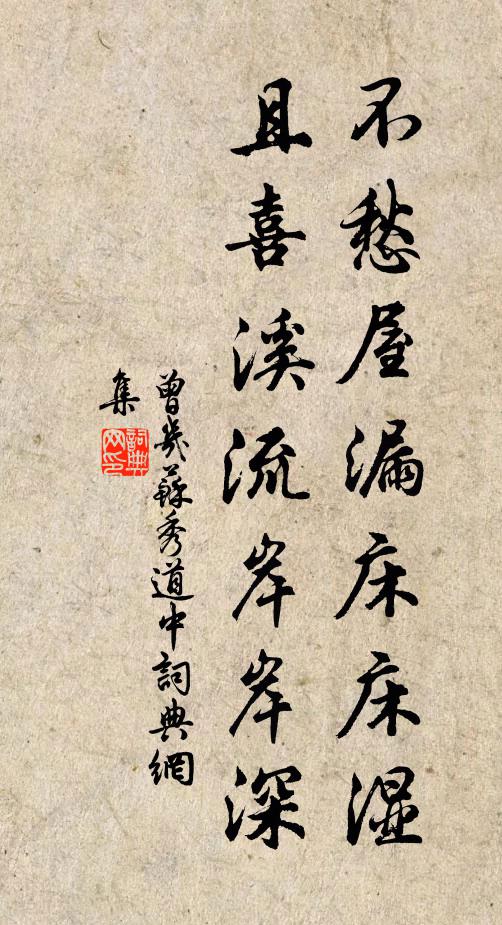 不愁屋漏床床湿
且喜溪流岸岸深
曾几蘇秀道中詞典網
集
詞典
网印